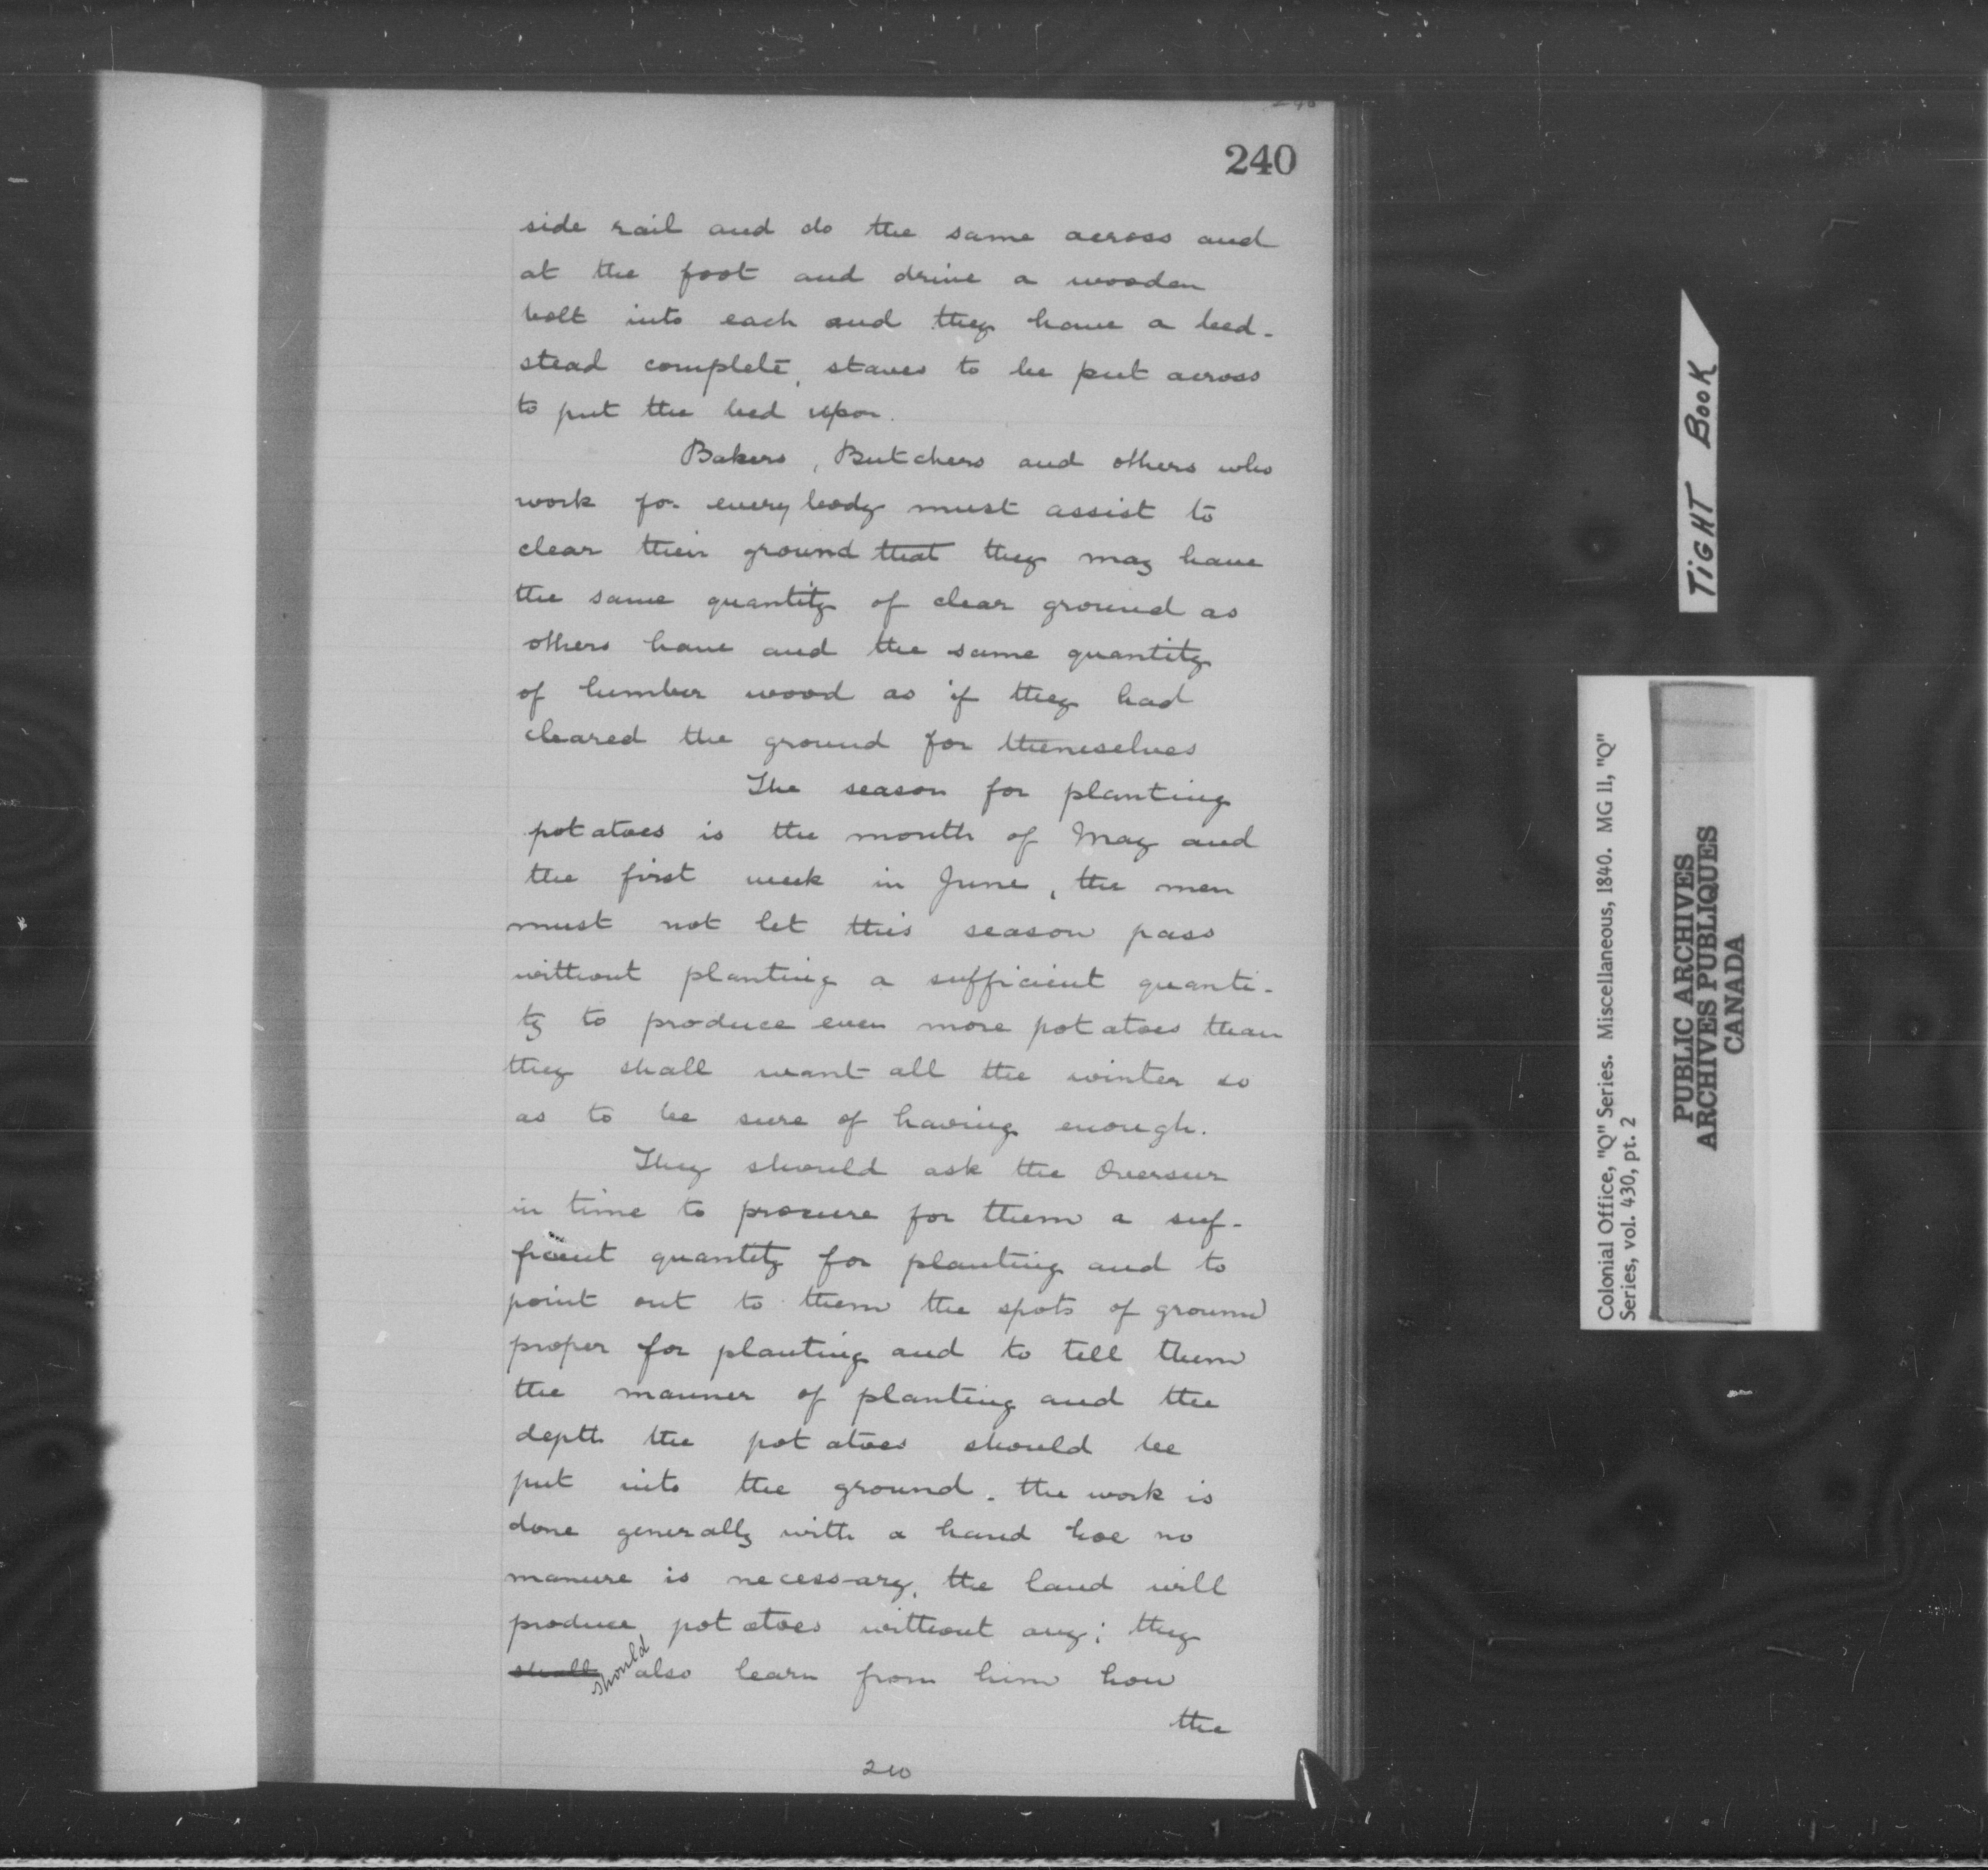 240
side rail and do the same across and
at the foot and drive a wooden
bolt into each and they have a bed-
stead complete, staves to be put across
to put the bed upon.
Bakers, Butchers and others who
work for every body must assist to
clear their ground that they may have
the same quantity of clear ground as
others have and the same quantity
of lumber wood as if they had
cleared the ground for themselves
The season for planting
potatoes is the month of May and
the first week in June, the men
must not let this season pass
without planting a sufficient quanti-
ty to produce even more potatoes than
they shall want all the winter so
as to be sure of having enough.
They should ask the Overseer
in time to procure for them a suf-
ficient quantity for planting and to
point out to them the spots of ground
proper for planting and to tell them
the manner of planting and the
depth the potatoes should be
put into the ground. the work is
done generally with a hand hoe no
manure is necessary, the land will
produce potatoes without any; they
shall should also learn from him how
the
TIGHT BOOK
Colonial Office, "Q" Series. Miscellaneous, 1840. MG 11, "Q"
Series, vol. 430, pt. 2
PUBLIC ARCHIVES
ARCHIVES PUBLIQUES
CANADA